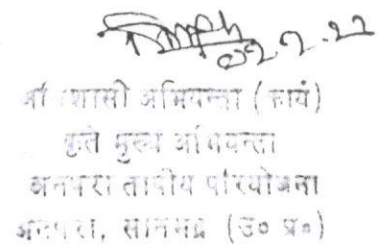 02.7.22
अधिशासी अभियन्ता (कार्य)
कृते मुख्य अभियन्ता
अनपरा तापीय परियोजना
अनपरा, सोनभद्र (उ० प्र०)